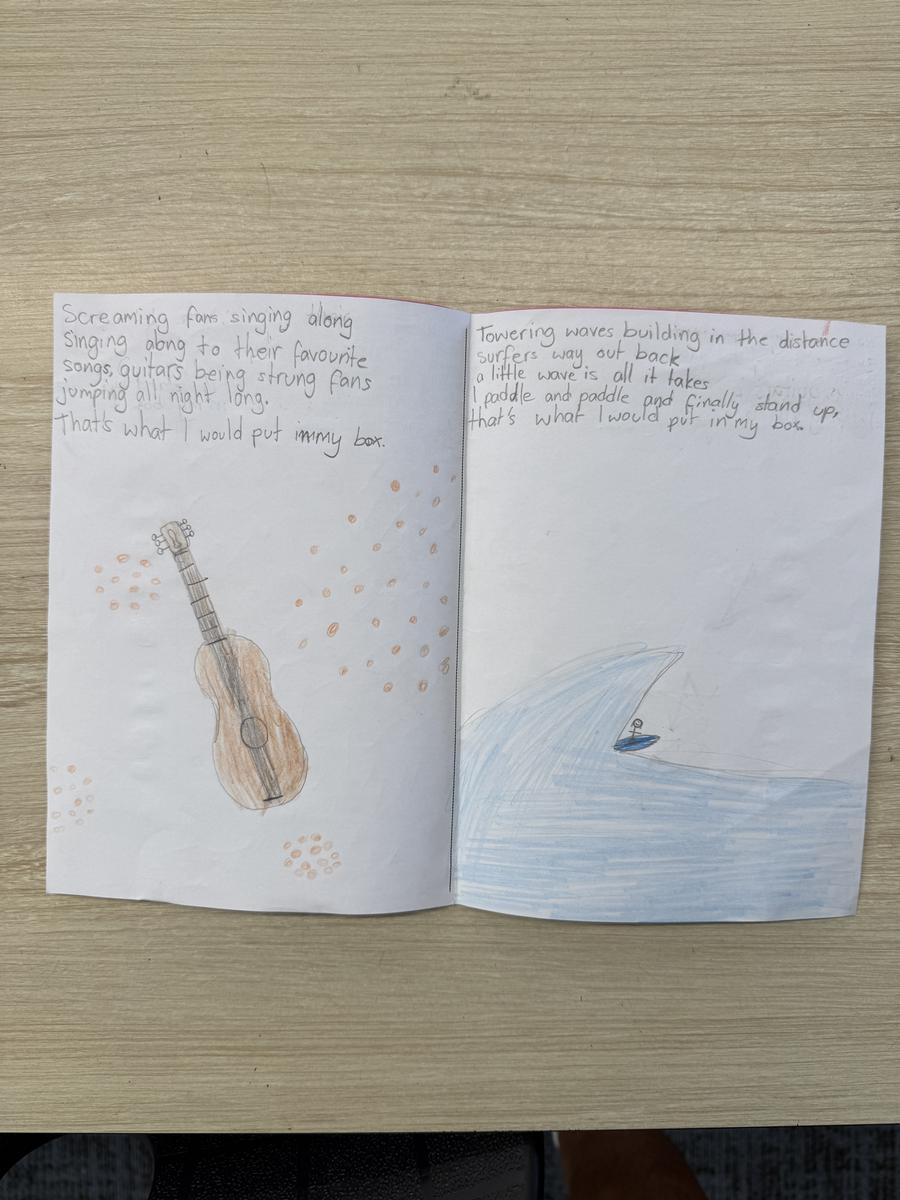 Screaming fans singing along
Singing along to their favourite
songs, guitars being strung fans
jumping all night long.
That's what I would put in my box.
Towering waves building in the distance
surfers way out back
a little wave is all it takes
I paddle and paddle and finally stand up,
that's what I would put in my box.